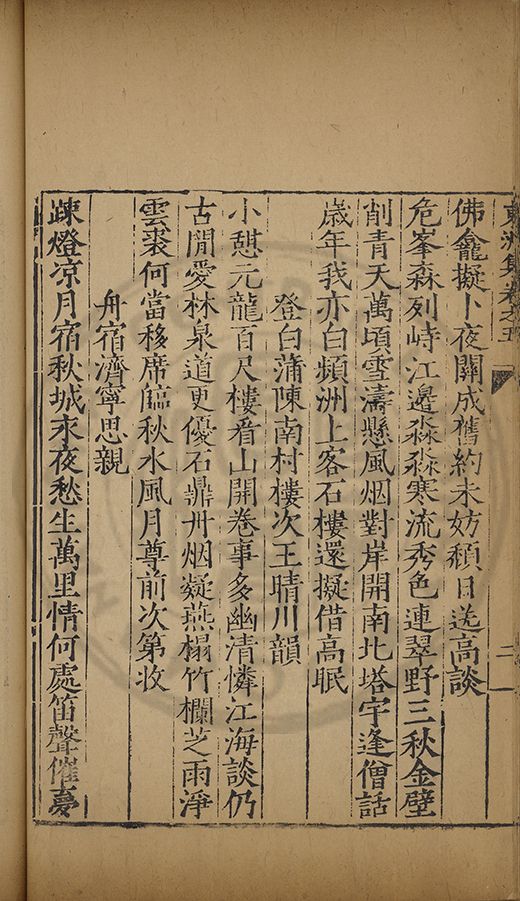 東洲集卷之五
二
佛龕擬卜夜闌成舊約未妨頹日送高談
危峯森列峙江邊淼淼寒流秀色連翠野三秋金壁
削青天萬頃雪濤懸風烟對岸開南北塔宇逢僧話
歲年我亦白頻洲上客石樓還擬借高眠
登白蒲陳南村樓次王晴川韻
小憩元龍百尺樓看山開卷事多幽清憐江海談仍
古閒愛林泉道更優石鼎丹烟凝燕榻竹欄芝雨淨
雲裘何當移席臨秋水風月尊前次第收
舟宿濟寧思親
疎燈凉月宿秋城永夜愁生萬里情何處笛聲催夢